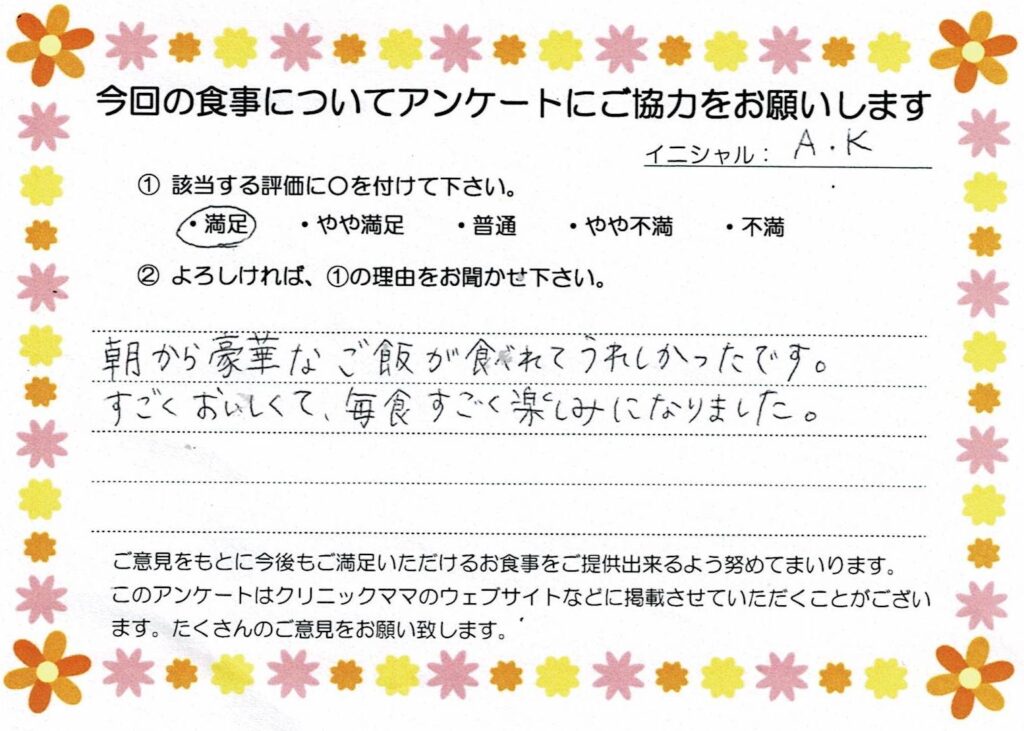 今回の食事についてアンケートにご協力をお願いします
イニシャル： A・K
① 該当する評価に〇を付けて下さい。
・満足 ・やや満足 ・普通 ・やや不満 ・不満
② よろしければ、①の理由をお聞かせ下さい。
朝から豪華なご飯が食べれてうれしかったです。
すごくおいしくて、毎食すごく楽しみになりました。
ご意見をもとに今後もご満足いただけるお食事をご提供出来るよう努めてまいります。
このアンケートはクリニックママのウェブサイトなどに掲載させていただくことがござい
ます。たくさんのご意見をお願い致します。